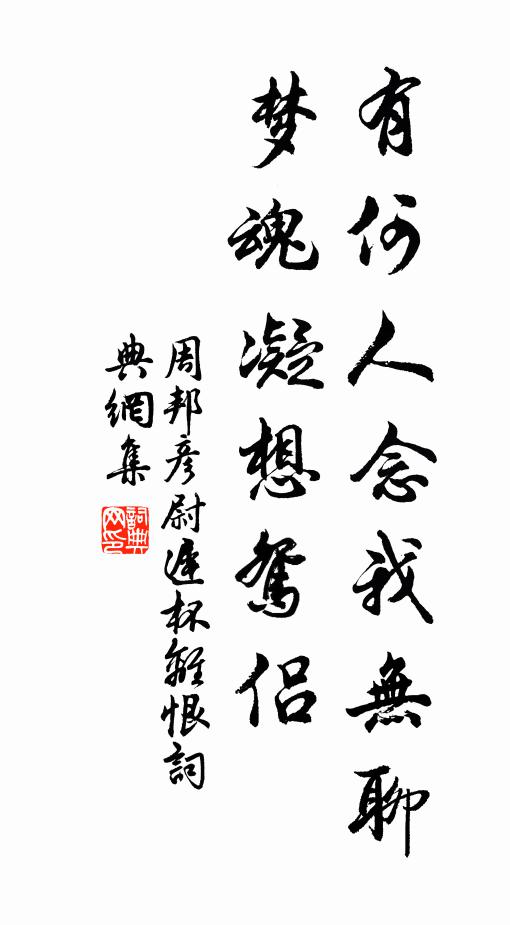 有何人念我無聊
梦魂凝想鴛侣
周邦彥尉遲杯離恨詞
典網集
詞典
网印